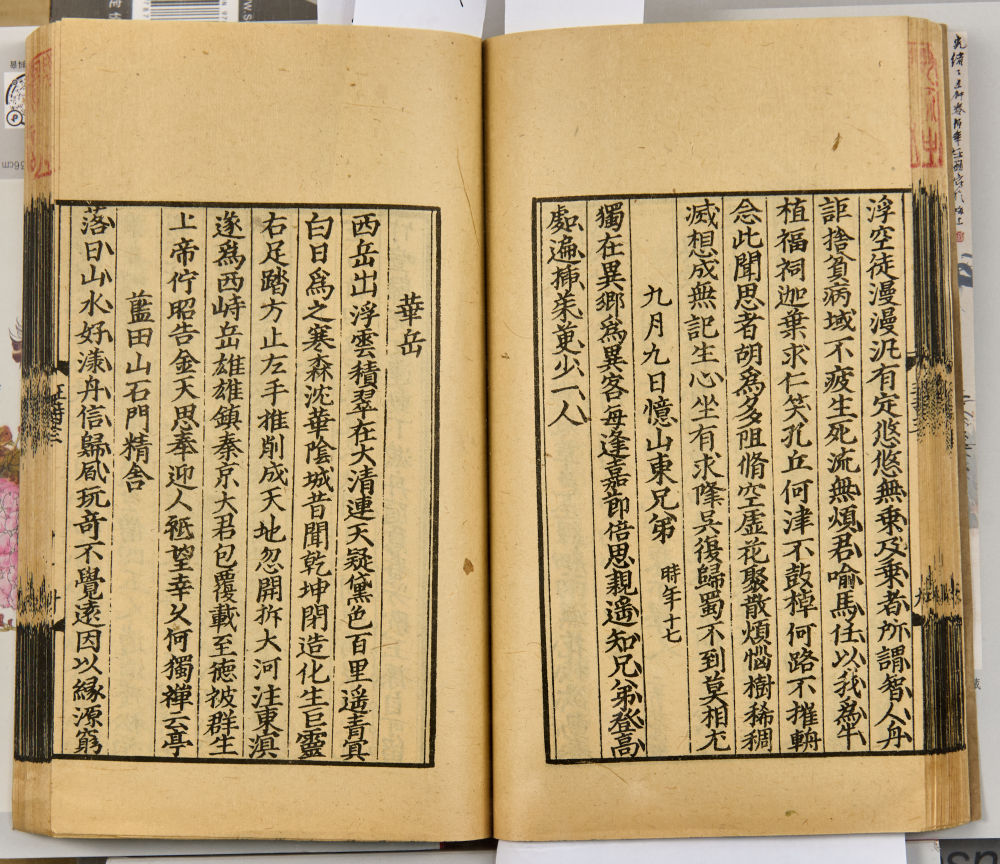 浮空徒漫漫汎有定悠悠無乗及乗者所謂智人舟
詎捨貧病域不疲生死流無煩君喻馬任以我為牛
植福祠迦葉求仁笑孔丘何津不鼓棹何路不摧輈
念此聞思者胡爲多阻脩空虛花聚散煩惱樹稀稠
滅想成無記生心坐有求降吳復歸蜀不到莫相尤
九月九日憶山東兄弟 時年十七
獨在異鄉爲異客每逢嘉節倍思親遥知兄弟登高
處遍揷茱萸少一人
華岳
西岳出浮雲積翠在大清連天疑黛色百里遥青冥
白日爲之寒森沈華陰城昔聞乾坤閉造化生巨靈
右足踏方止左手推削成天地忽開拆大河注東溟
遂爲西峙岳雄雄鎮秦京大君包覆載至德被群生
上帝佇昭告金天思奉迎人祗望幸久何獨禅云亭
藍田山石門精舍
落日山水好漾舟信歸風玩奇不覺遠因以緣源窮